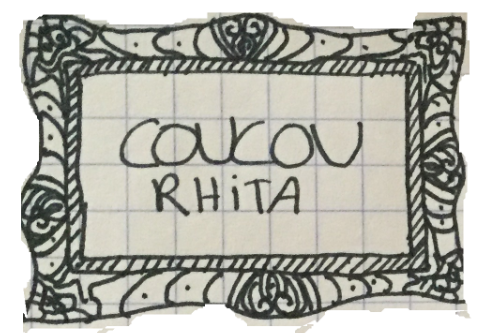 COUCOU
RHiTA